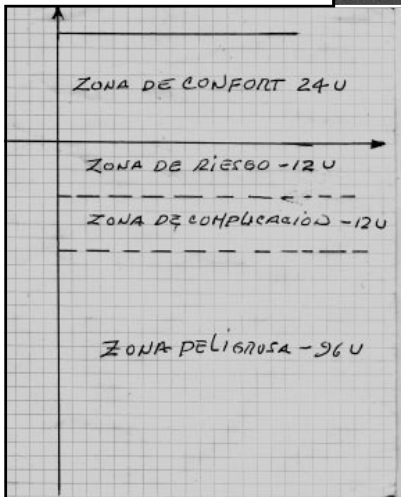 ZONA DE CONFORT 24 U
ZONA DE RIESGO -12 U
ZONA DE COMPLICACIÓN -12 U
ZONA PELIGROSA -96 U